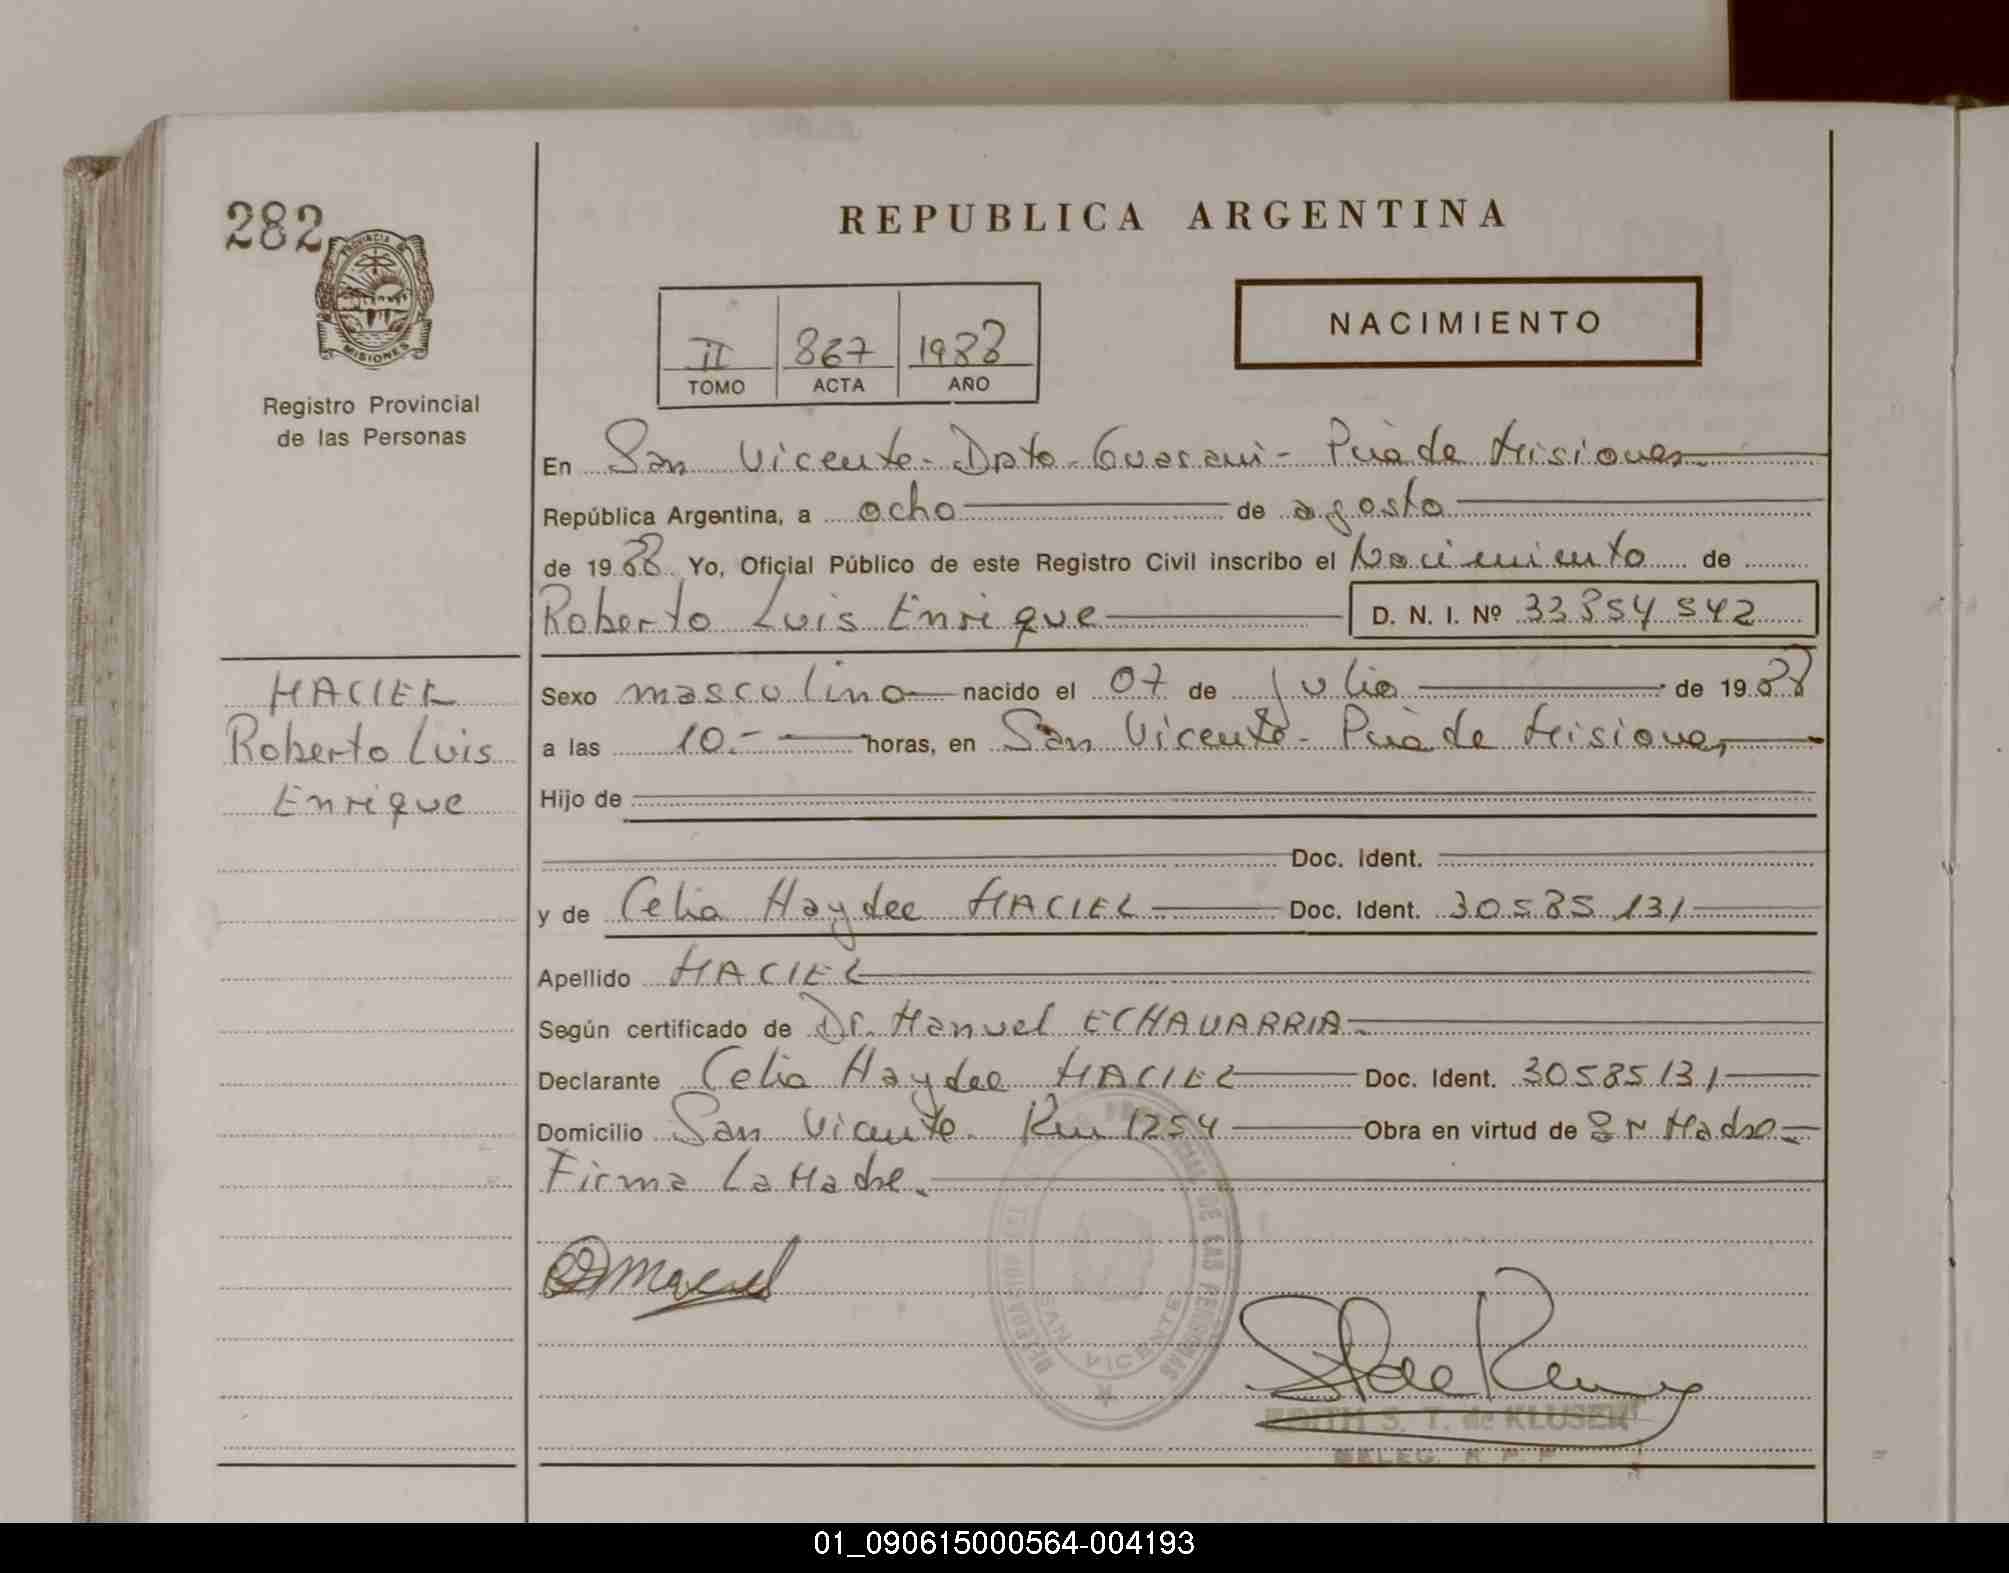 282
PROVINCIA DE
MISIONES
Registro Provincial
de las Personas
REPUBLICA ARGENTINA
NACIMIENTO
II 867 1988
TOMO ACTA AÑO
En San Vicente - Dpto. Guarani - Pcia de Misiones
República Argentina, a ocho de agosto
de 1988 Yo, Oficial Público de este Registro Civil inscribo el Nacimiento de
Roberto Luis Enrique D. N. I. Nº 33354542
MACIEL
Roberto Luis
Enrique
Sexo masculino nacido el 07 de julio de 1988
a las 10.- horas, en San Vicente - Pcia de Misiones
Hijo de
Doc. Ident.
y de Celia Haydee MACIEL Doc. Ident. 30585131
Apellido MACIEL
Según certificado de Dr. Manuel ECHAVARRIA.
Declarante Celia Haydee MACIEL Doc. Ident. 30585131
Domicilio San Vicente. Km 1254 Obra en virtud de Madre
Firma La Madre.
SAN VICENTE
EDITH S. T. de KLUSENER
DELEG. R. P. P.
01_090615000564-004193